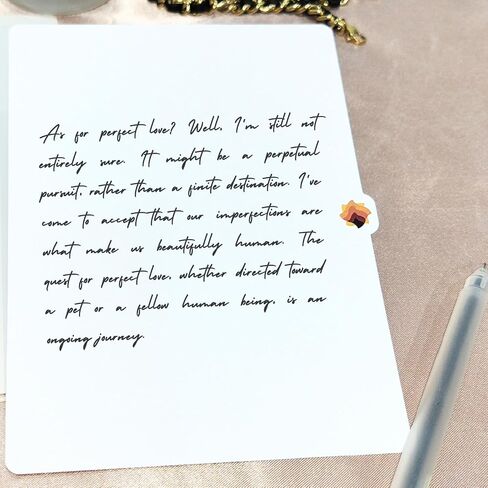 As for perfect love? Well, I'm still not
entirely sure. It might be a perpetual
pursuit, rather than a finite destination. I've
come to accept that our imperfections are
what make us beautifully human. The
quest for perfect love, whether directed toward
a pet or a fellow human being, is an
ongoing journey.